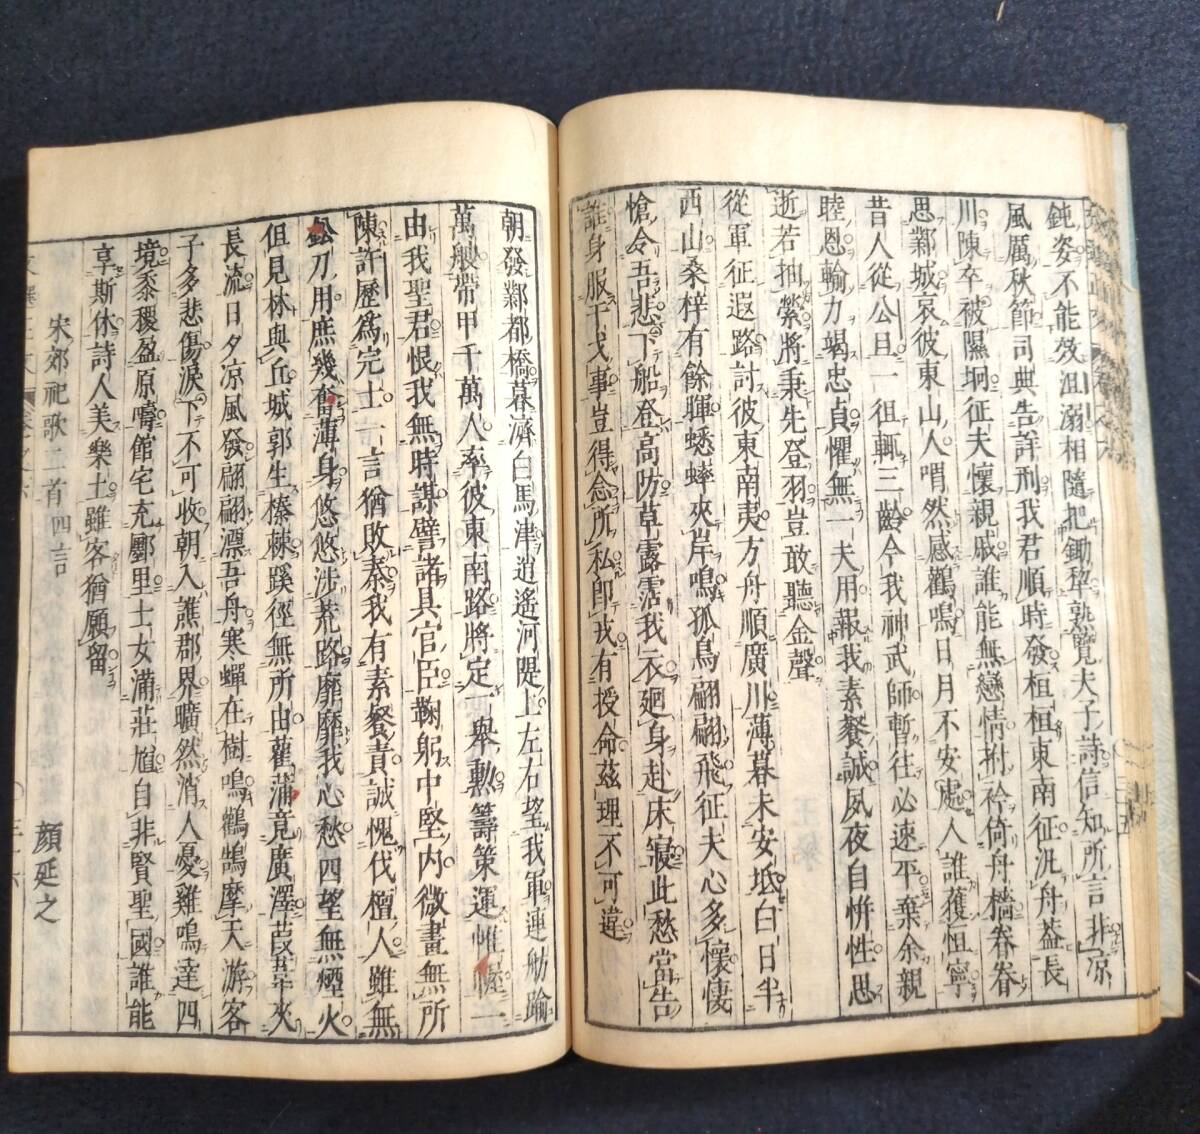 鈍姿不能效沮溺相隨把鋤犂熟覽夫子詩信知所言非凉
風厲秋節司典告詳刑我君順時發桓桓東南征汎舟葢長
川陳卒被隰坰征夫懷親戚誰能無戀情拊衿倚舟檣眷眷
思鄴城哀彼東山人喟然感鸛鳴日月不安處人誰獲恒寧
昔人從公旦一徂輒三齡今我神武師暫往必速平棄余親
睦恩輸力竭忠貞懼無一夫用報我素餐誠夙夜自恲性思
逝若抽縈將秉先登羽豈敢聽金聲
從軍征遐路討彼東南夷方舟順廣川薄暮未安坻白日半
西山桑梓有餘暉蟋蟀夾岸鳴孤鳥翩翩飛征夫心多懷悽
愴令吾悲下船登高防草露霑我衣廻身赴床寢此愁當告
誰身服干戈事豈得念所私即戎有授命茲理不可違
朝發鄴都橋暮濟白馬津逍遙河隄上左右望我軍連舫踰
萬艘帶甲千萬人率彼東南路將定一舉勲籌策運帷幄一
由我聖君恨我無時謀譬諸具官臣鞠躬中堅内微畫無所
陳許歷爲完士一言猶敗秦我有素餐責誠愧伐檀人雖無
鈆刀用庶幾奮薄身悠悠涉荒路靡靡我心愁四望無煙火
但見林與丘城郭生榛棘蹊徑無所由雚蒲竟廣澤葭葦夾
長流日夕凉風發翩翩漂吾舟寒蟬在樹鳴鸛鵠摩天游客
子多悲傷淚下不可收朝入譙郡界曠然消人憂雞鳴達四
境黍稷盈原疇館宅充鄽里士女滿莊馗自非賢聖國誰能
享斯休詩人美樂土雖客猶願留
宋郊祀歌二首四言 顔延之